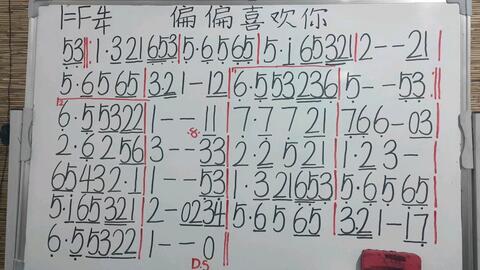 1=F 4/4 偏偏喜欢你
53‖: 1·321653|5·6565|5·165321|2--21|
5·6565|321-12|6·553236|5--53:‖
6·55322|1--11|7·7721|766-03|
2·6256|3--33|2·2521|1·23-|
65432·1|1--53|1·321653|5·6565|
5·165321|2-0234|5·6565|321-17|
6·55322|1--0‖
D.S